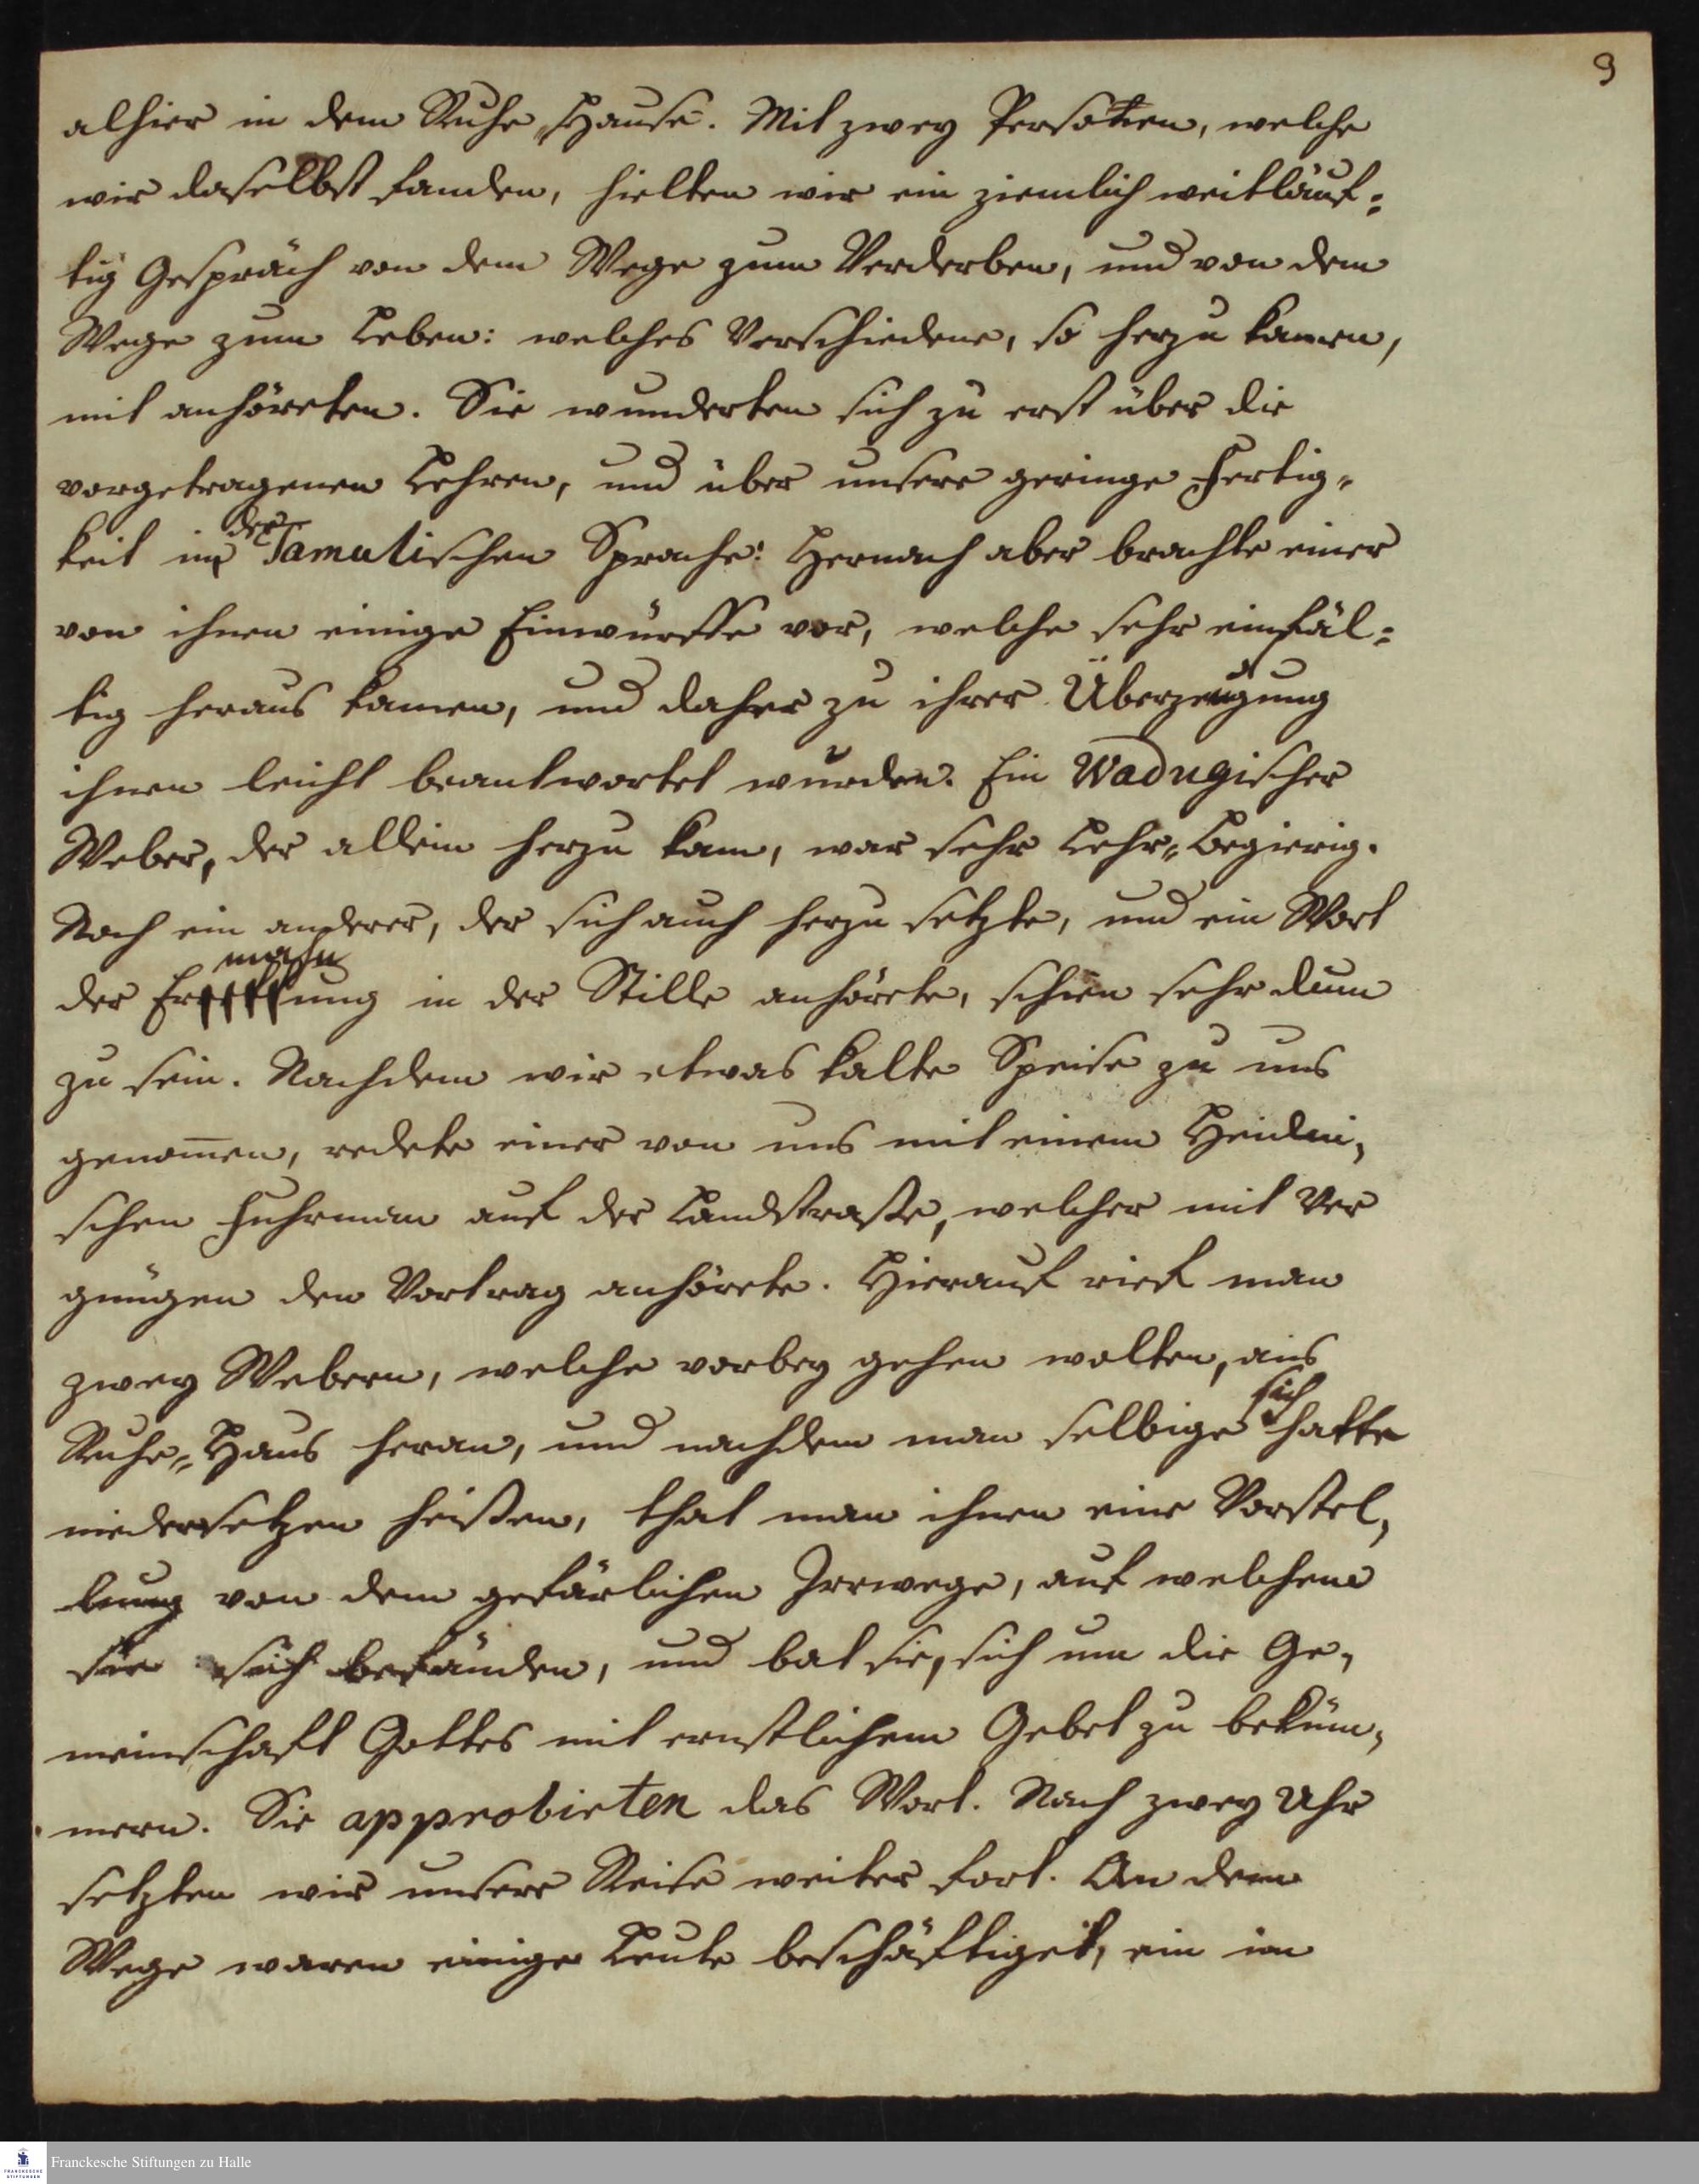 9
alhier in dem Ruhe-Hause. Mit zwey Personen, welche
wir daselbst fanden, hielten wir ein ziemlich weitläuf-
tig Gespräch von dem Wege zum Verderben, und von dem
Wege zum Leben: welches Verschiedene, so herzu kamen,
mit anhöreten. Sie wunderten sich zu erst über die
vorgetragenen Lehren, und über unsere geringe Fertig-
keit in der Tamulischen Sprache: Hernach aber brachte einer
von ihnen einige Einwürffe vor, welche sehr einfäl-
tig heraus kamen, und daher zu ihrer Überzeugung
ihnen leicht beantwortet wurden. Ein Wadugischer
Weber, der allein herzu kam, war sehr Lehr-Begierig.
Noch ein anderer, der sich auch herzu setzte, und ein Wort
der Ermahnung in der Stille anhörete, schien sehr dum
zu sein. Nachdem wir etwas kalte Speise zu uns
genom̄en, redete einer von uns mit einem Heidni-
schen Fuhrman auf der Landstraße, welcher mit Ver
gnügen den Vortrag anhörete. Hierauf rief man
zwey Webern, welche vorbey gehen wolten, ans
Ruhe-Haus heran, und nachdem man selbige sich hatte
niedersetzen heißen, that man ihnen eine Vorstel-
lung von dem gefärlichen Irrwege, auf welchem
sie sich befänden, und bat sie, sich um die Ge-
meinschaft Gottes mit ernstlichem Gebet zu beküm-
mern. Sie approbirten das Wort. Nach zwey Uhr
setzten wir unsere Reise weiter fort. An dem
Wege waren einige Leute beschäftiget, ein im
Franckesche Stiftungen zu Halle